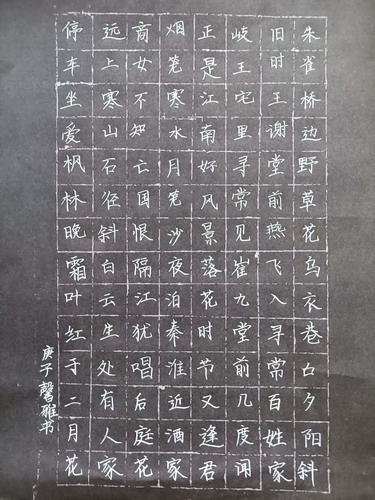 朱雀桥边野草花乌衣巷口夕阳斜
旧时王谢堂前燕飞入寻常百姓家
岐王宅里寻常见崔九堂前几度闻
正是江南好风景落花时节又逢君
烟笼寒水月笼沙夜泊秦淮近酒家
商女不知亡国恨隔江犹唱后庭花
远上寒山石径斜白云生处有人家
停车坐爱枫林晚霜叶红于二月花
庚子馨雅书